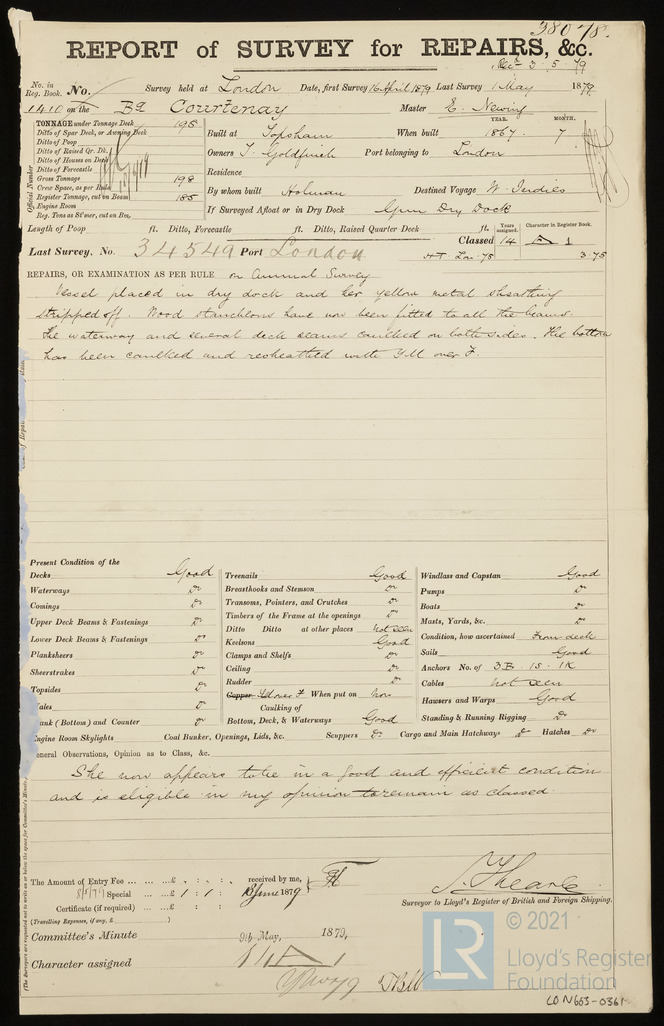 38078.
REPORT of SURVEY for REPAIRS, &c.
Rec. 3.5.79
No. in Reg. Book. No. Survey held at London Date, first Survey 16 April 1879 Last Survey 1 May 1879.
1410 on the Bq Courtenay Master E. Newing
TONNAGE under Tonnage Deck 195
Ditto of Spar Deck, or Awning Deck
Ditto of Poop
Ditto of Raised Qr. Dk.
Ditto of Houses on Deck
Ditto of Forecastle
Gross Tonnage 198
Crew Space, as per Rule
Register Tonnage, cut on Beam 185
Engine Room
Reg. Tons as St'mer, cut on Bm.
Official Number
YEAR. MONTH.
Built at Topsham When built 1867. 7
Owners T. Goldfinch Port belonging to London
Residence
By whom built Holman Destined Voyage W. Indies
If Surveyed Afloat or in Dry Dock Dry Dock
Length of Poop ft. Ditto, Forecastle ft. Ditto, Raised Quarter Deck ft.
Years assigned. Character in Register Book.
Classed 14 A 1
Last Survey, No. 34549 Port London
Lon. 75 3.75
REPAIRS, OR EXAMINATION AS PER RULE on Annual Survey
Vessel placed in dry dock and her yellow metal sheathing
stripped off. Wood stanchions have now been fitted to all the beams.
The waterway and several deck seams caulked on both sides. The bottom
has been caulked and resheathed with Y.M over F.
Present Condition of the
Decks Good
Waterways Do
Comings Do
Upper Deck Beams & Fastenings Do
Lower Deck Beams & Fastenings Do
Planksheers Do
Sheerstrakes Do
Topsides Do
ales Do
ank (Bottom) and Counter Do
Treenails Good
Breasthooks and Stemson Do
Transoms, Pointers, and Crutches Do
Timbers of the Frame at the openings Do
Ditto Ditto at other places not seen
Keelsons Good
Clamps and Shelfs Do
Ceiling Do
Rudder Do
Copper over F When put on Now
Caulking of
Bottom, Deck, & Waterways Good
Windlass and Capstan Good
Pumps Do
Boats Do
Masts, Yards, &c. Do
Condition, how ascertained From deck
Sails Good
Anchors No. of 3B. 1S. 1K
Cables not seen
Hawsers and Warps Good
Standing & Running Rigging Do
ngine Room Skylights Coal Bunker, Openings, Lids, &c. Scuppers Do Cargo and Main Hatchways Do Hatches Do
eneral Observations, Opinion as to Class, &c.
She now appears to be in a good and efficient condition
and is eligible in my opinion to remain as classed.
The Amount of Entry Fee ... ... ...£ : : received by me,
Special ... ...£ 1 : 1 : June 1879
Certificate (if required) ... ...£ : :
(Travelling Expenses, if any, £ )
Surveyor to Lloyd's Register of British and Foreign Shipping.
Committee's Minute 9th May, 1879,
Character assigned
© 2021
LR
Lloyd's Register
Foundation
LON653-0361